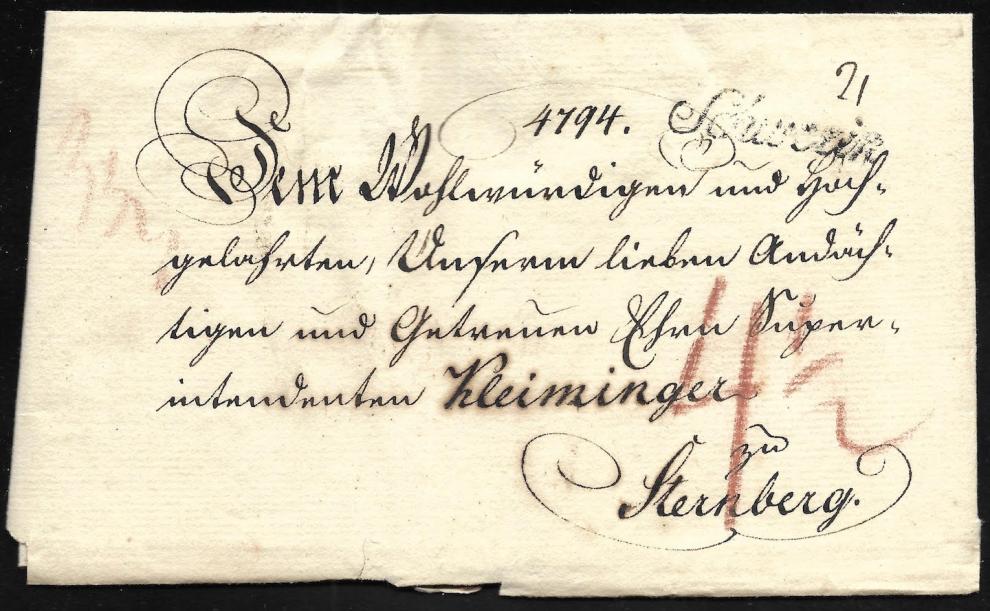 21
4794. Schwerin
Dem Wohlwürdigen und Hoch-
gelahrten, Unserm lieben Andäch-
tigen und Getreuen Ehrn Super-
intendenten Kleiminger
4½
zu
Sternberg.